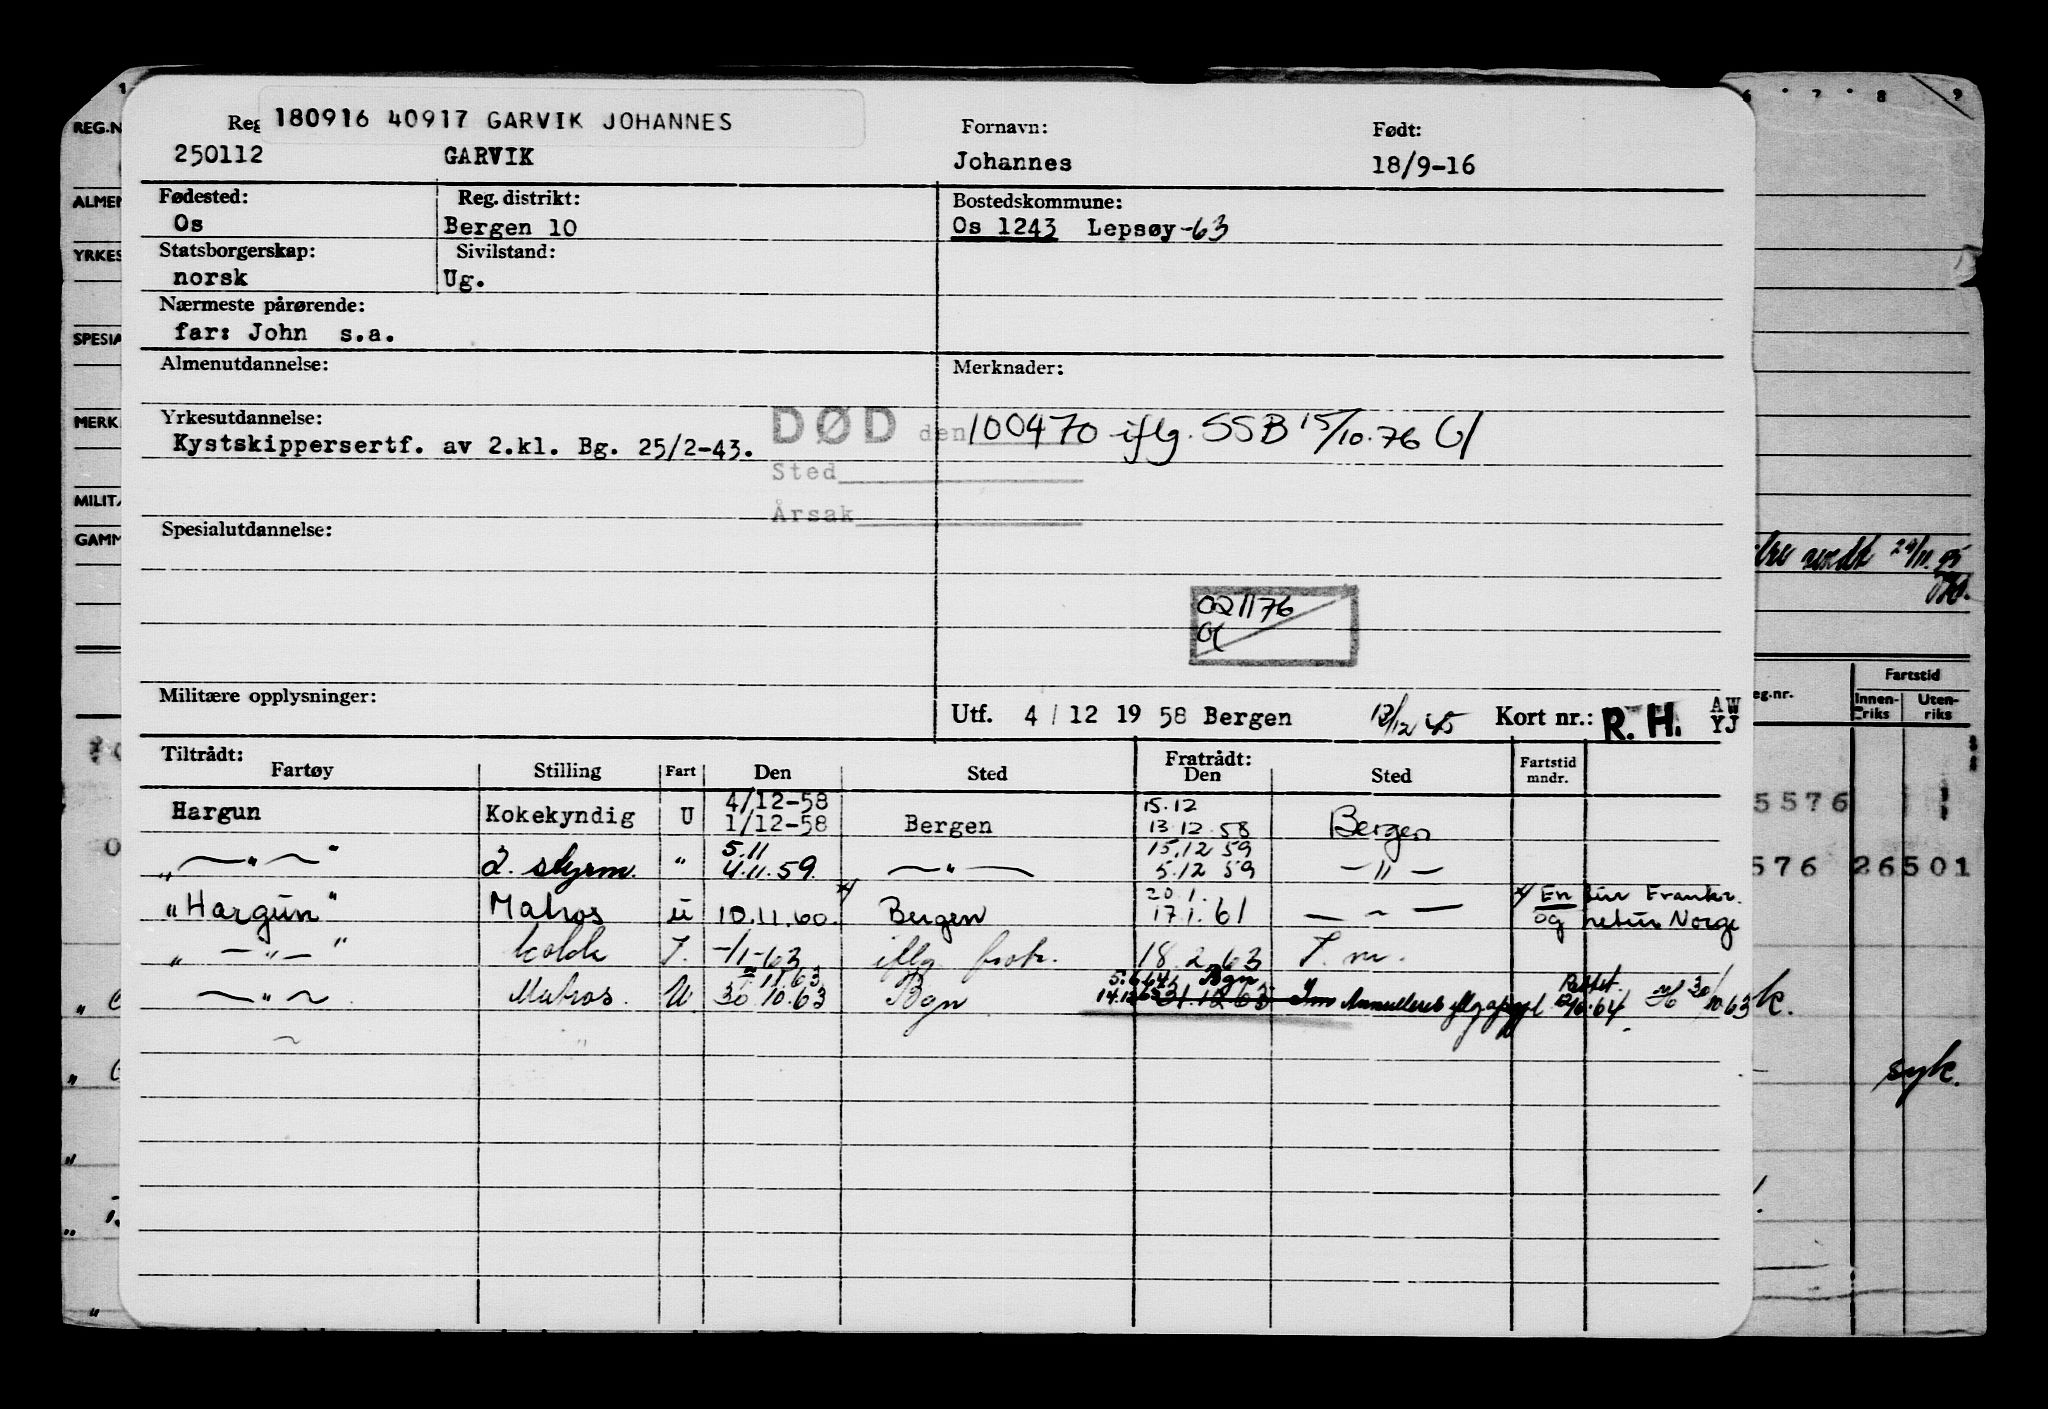 180916 40917 GARVIK JOHANNES
Reg Fornavn: Født:
250112 GARVIK Johannes 18/9-16
Fødested: Reg. distrikt: Bostedskommune:
Os Bergen 10 Os 1243 Lepsøy -63
Statsborgerskap: Sivilstand:
norsk Ug.
Nærmeste pårørende:
far: John s.a.
Almenutdannelse: Merknader:
Yrkesutdannelse:
DØD den 100470 iflg. SSB 15/10.76
Kystskippersertf. av 2.kl. Bg. 25/2-43.
Sted
Årsak
Spesialutdannelse:
021176
Militære opplysninger:
Utf. 4 / 12 19 58 Bergen 13/12 Kort nr.: R. H. AW YJ
Tiltrådt: Fratrådt:
Fartøy Stilling Fart Den Sted Den Sted Fartstid mndr.
4/12-58 15.12
Hargun Kokekyndig U 1/12-58 Bergen 13.12.58 Bergen
5.11 15.12 59
„ — " — " 2. styrm. " 4.11.59. — " — 5.12 59 — " —
20.1.
"Hargun" Matros u 10.11.60. x/ Bergen 17.1.61 — " — x/ En tur Frankr. og retur Norge
„ — " — " kokk I. -/1-63 iflg. frakt. 18.2.63 I. m.
11.63 5.6.64 Bgn
— " — Matros. U 30.10.63 Bgn 14.12.63 31.12.63 Im Annulleret iflg oppgj 10.64 30/10 63
REG.N
ALMEN
YRKES
SPESIA
MERK.
MILITÆ
GAMM
6 7 8 9
sendt 29/11.
eg.nr. Fartstid
Innen-riks Uten-riks
5576
576 26501
k.
syk.